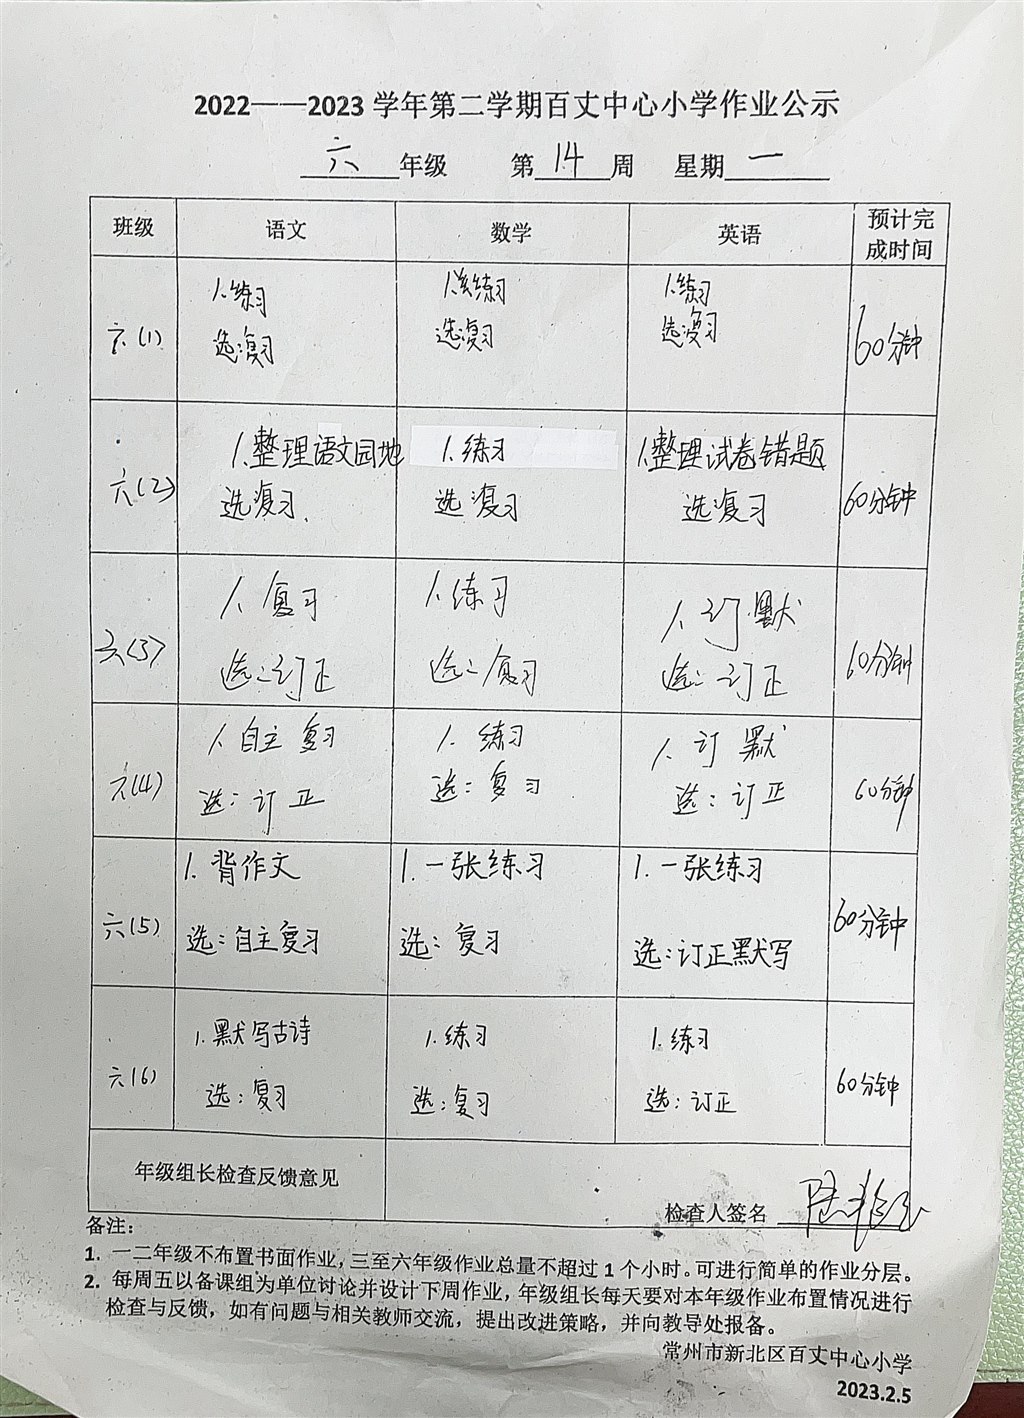 2022——2023 学年第二学期百丈中心小学作业公示
六 年级 第 14 周 星期 一
班级 语文 数学 英语 预计完成时间
六(1)
1.练习
选:复习
1.练习
选:复习
1.练习
选:复习
60分钟
六(2)
1.整理语文园地
选:复习.
1.练习
选:复习
1.整理试卷错题
选:复习
60分钟
六(3)
1.复习
选:订正
1.练习
选:复习
1.订.默
选:订正
60分钟
六(4)
1.自主复习
选:订正
1.练习
选:复习
1.订默
选:订正
60分钟
六(5)
1.背作文
选:自主复习
1.一张练习
选:复习
1.一张练习
选:订正默写
60分钟
六(6)
1.默写古诗
选:复习
1.练习
选:复习
1.练习
选:订正
60分钟
年级组长检查反馈意见
检查人签名
备注:
1. 一二年级不布置书面作业，三至六年级作业总量不超过 1 个小时。可进行简单的作业分层。
2. 每周五以备课组为单位讨论并设计下周作业，年级组长每天要对本年级作业布置情况进行
检查与反馈，如有问题与相关教师交流，提出改进策略，并向教导处报备。
常州市新北区百丈中心小学
2023.2.5